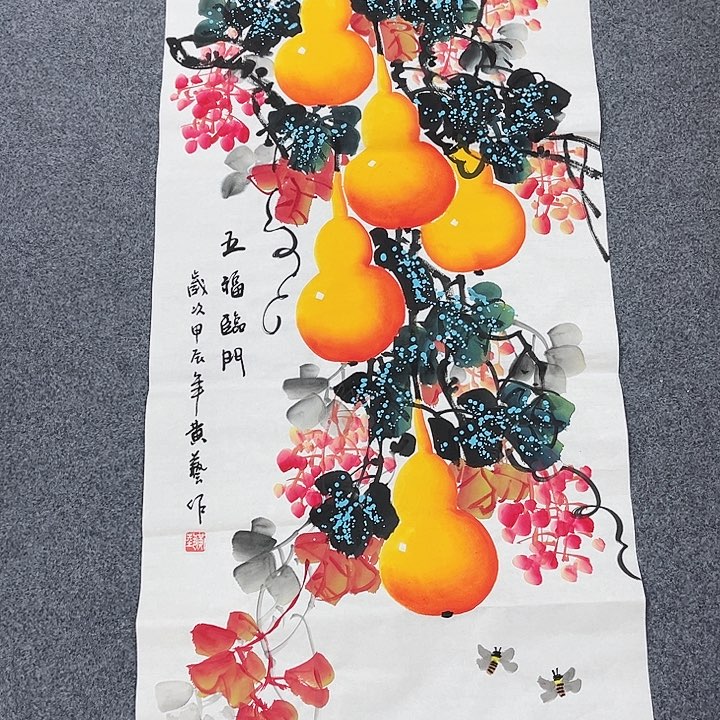 五福臨門
歲次甲辰年黄藝作